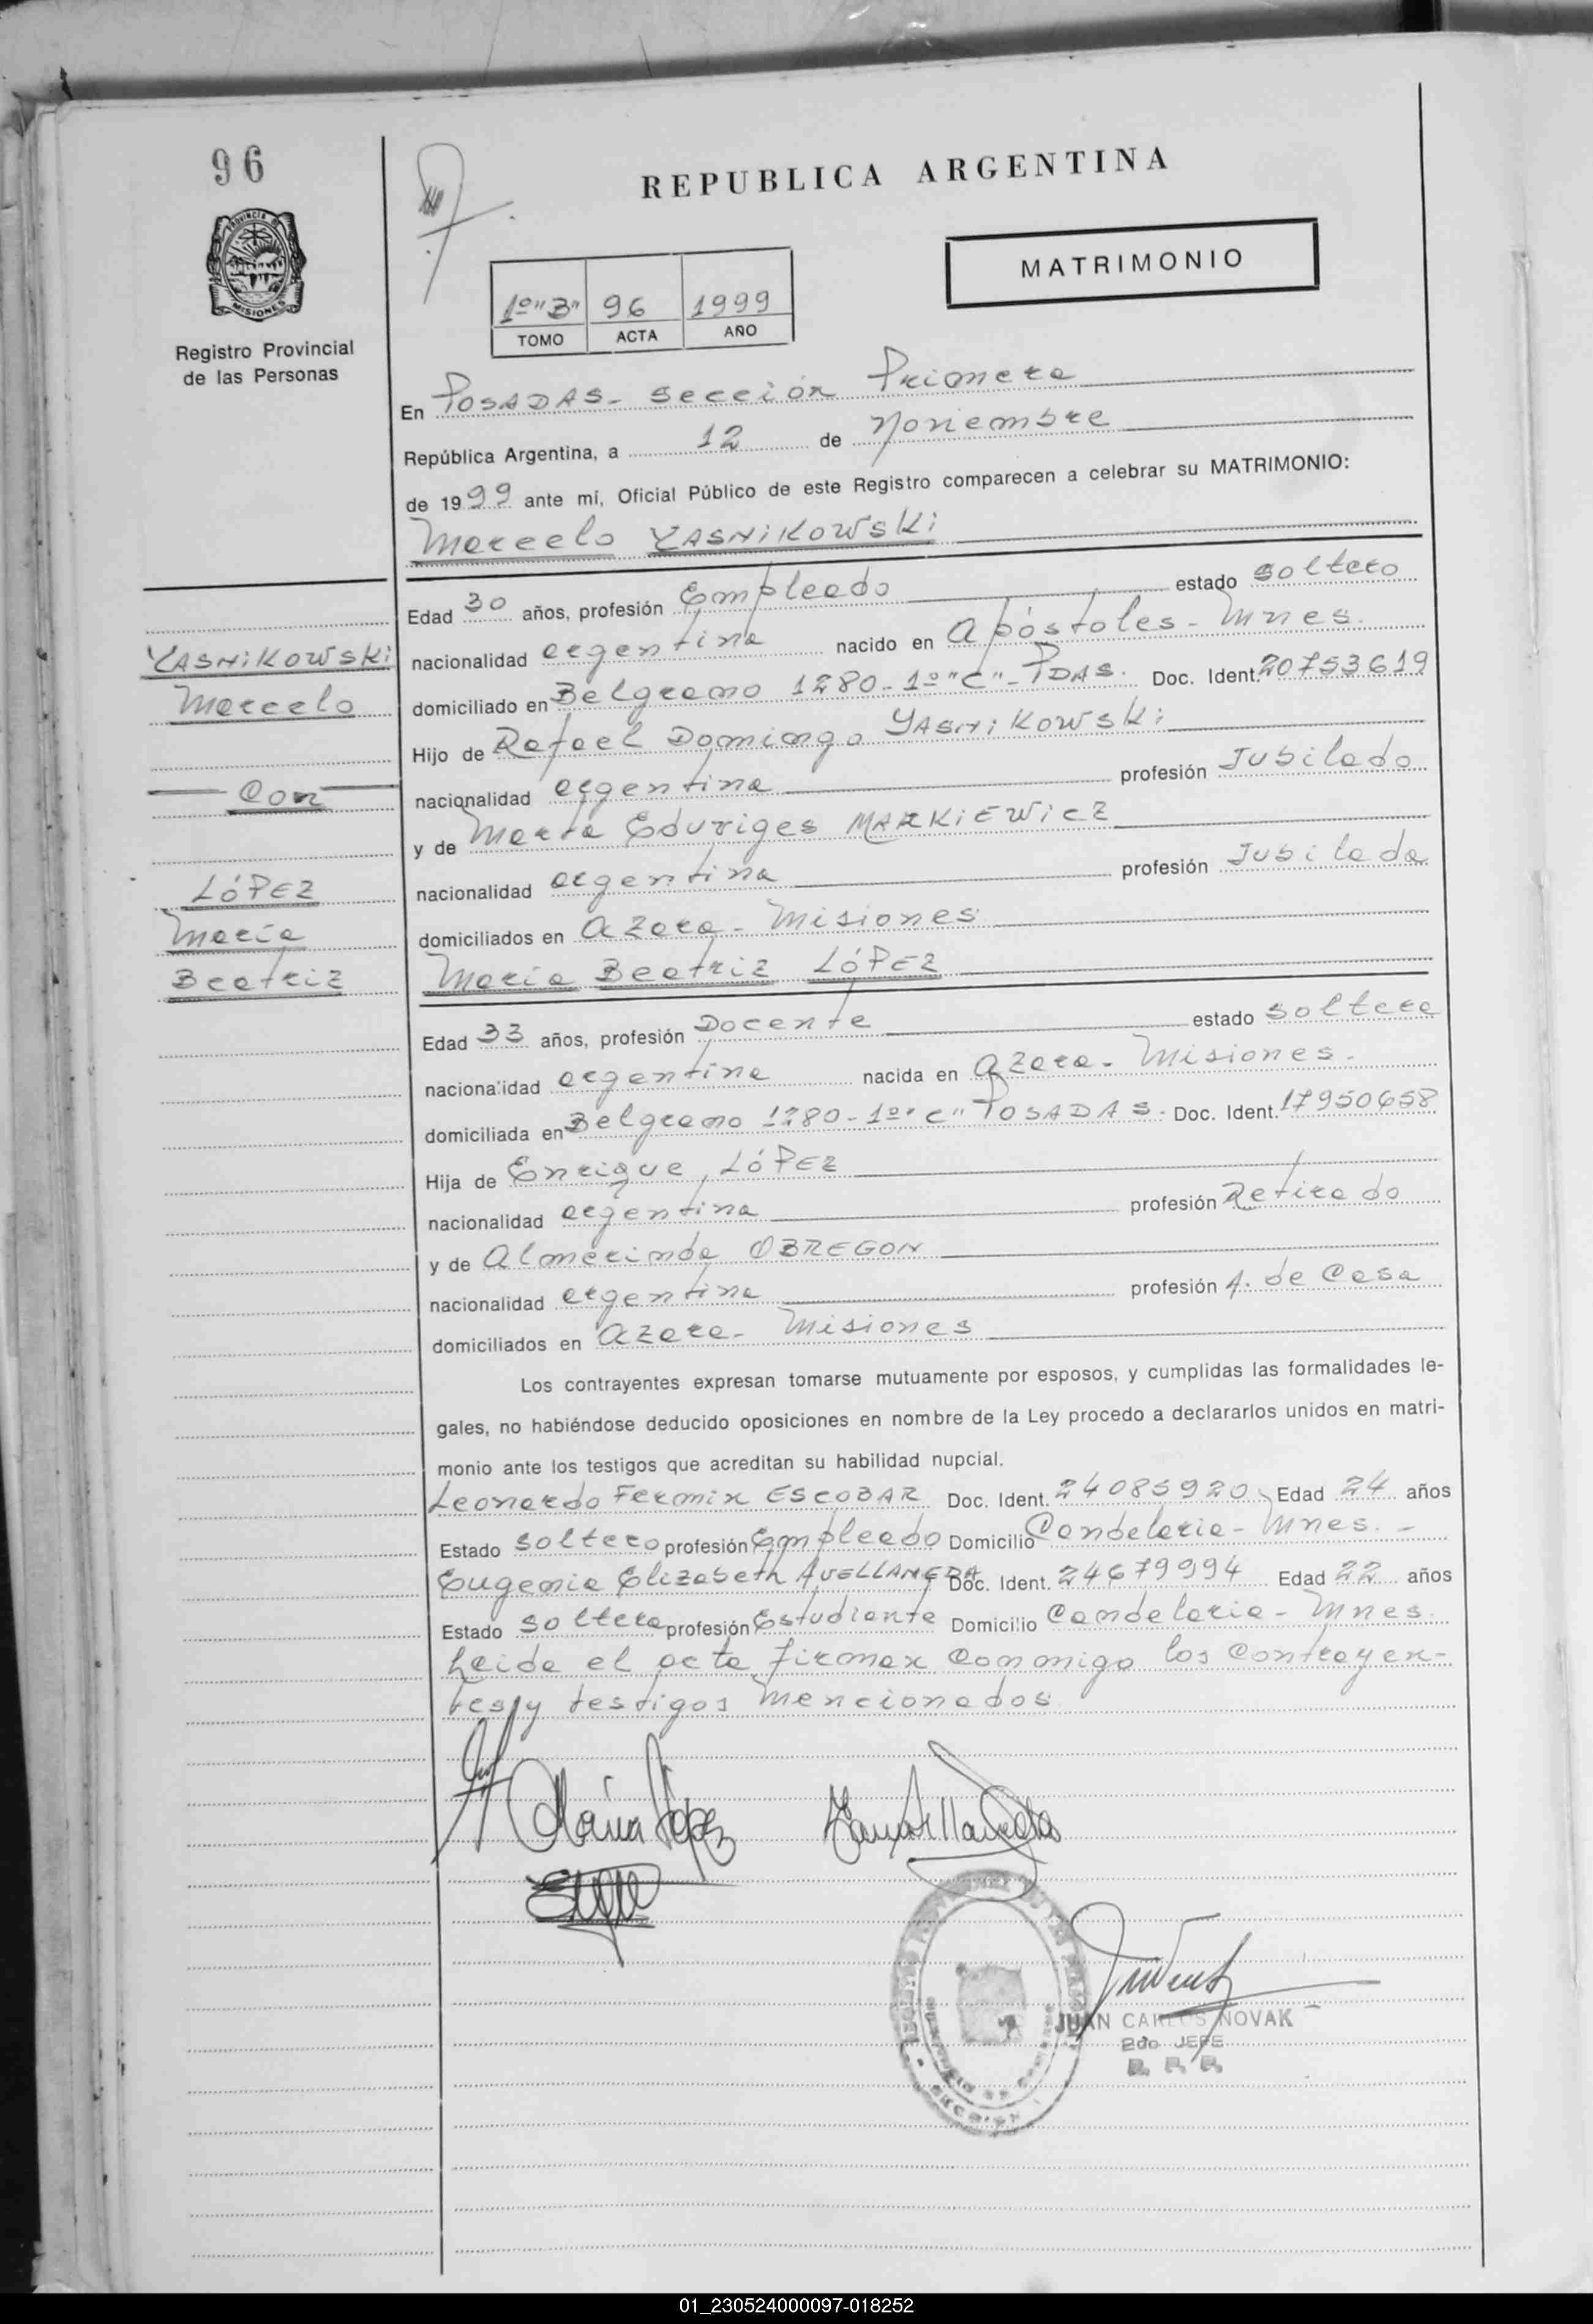 96
PROVINCIA DE
MISIONES
Registro Provincial
de las Personas
REPUBLICA ARGENTINA
MATRIMONIO
1º "B" 96 1999
TOMO ACTA AÑO
En POSADAS - Sección Primera
República Argentina, a 12 de Noviembre
de 1999 ante mí, Oficial Público de este Registro comparecen a celebrar su MATRIMONIO:
Marcelo YASNIKOWSKI
Edad 30 años, profesión Empleado estado soltero
YASNIKOWSKI
nacionalidad argentina nacido en Apóstoles - Mnes.
Marcelo
domiciliado en Belgrano 1280 - 1º "C" - PDAS. Doc. Ident. 20753619
Hijo de Rafael Domingo YASNIKOWSKI
Con
nacionalidad argentina profesión Jubilado
y de Marta Eduviges MARKIEWICZ
LÓPEZ
nacionalidad argentina profesión Jubilada
María
domiciliados en Azara - Misiones
Beatriz
María Beatriz LÓPEZ
Edad 33 años, profesión Docente estado soltera
nacionalidad argentina nacida en Azara - Misiones.
domiciliada en Belgrano 1280 - 1º "C" POSADAS. Doc. Ident. 17950658
Hija de Enrique LÓPEZ
nacionalidad argentina profesión Retirado
y de Almerinda OBREGON
nacionalidad argentina profesión A. de Casa
domiciliados en Azara - Misiones
Los contrayentes expresan tomarse mutuamente por esposos, y cumplidas las formalidades le-
gales, no habiéndose deducido oposiciones en nombre de la Ley procedo a declararlos unidos en matri-
monio ante los testigos que acreditan su habilidad nupcial.
Leonardo Fermin ESCOBAR Doc. Ident. 24085920 Edad 24 años
Estado soltero profesión Empleado Domicilio Candelaria - Mnes. -
Eugenia Elizabeth AVELLANEDA Doc. Ident. 24679994 Edad 22 años
Estado soltera profesión Estudiante Domicilio Candelaria - Mnes.
Leida el acta firman conmigo los Contrayen-
tes y testigos mencionados
María López
JUAN CARLOS NOVAK
2do JEFE
R. P. P.
01_230524000097-018252